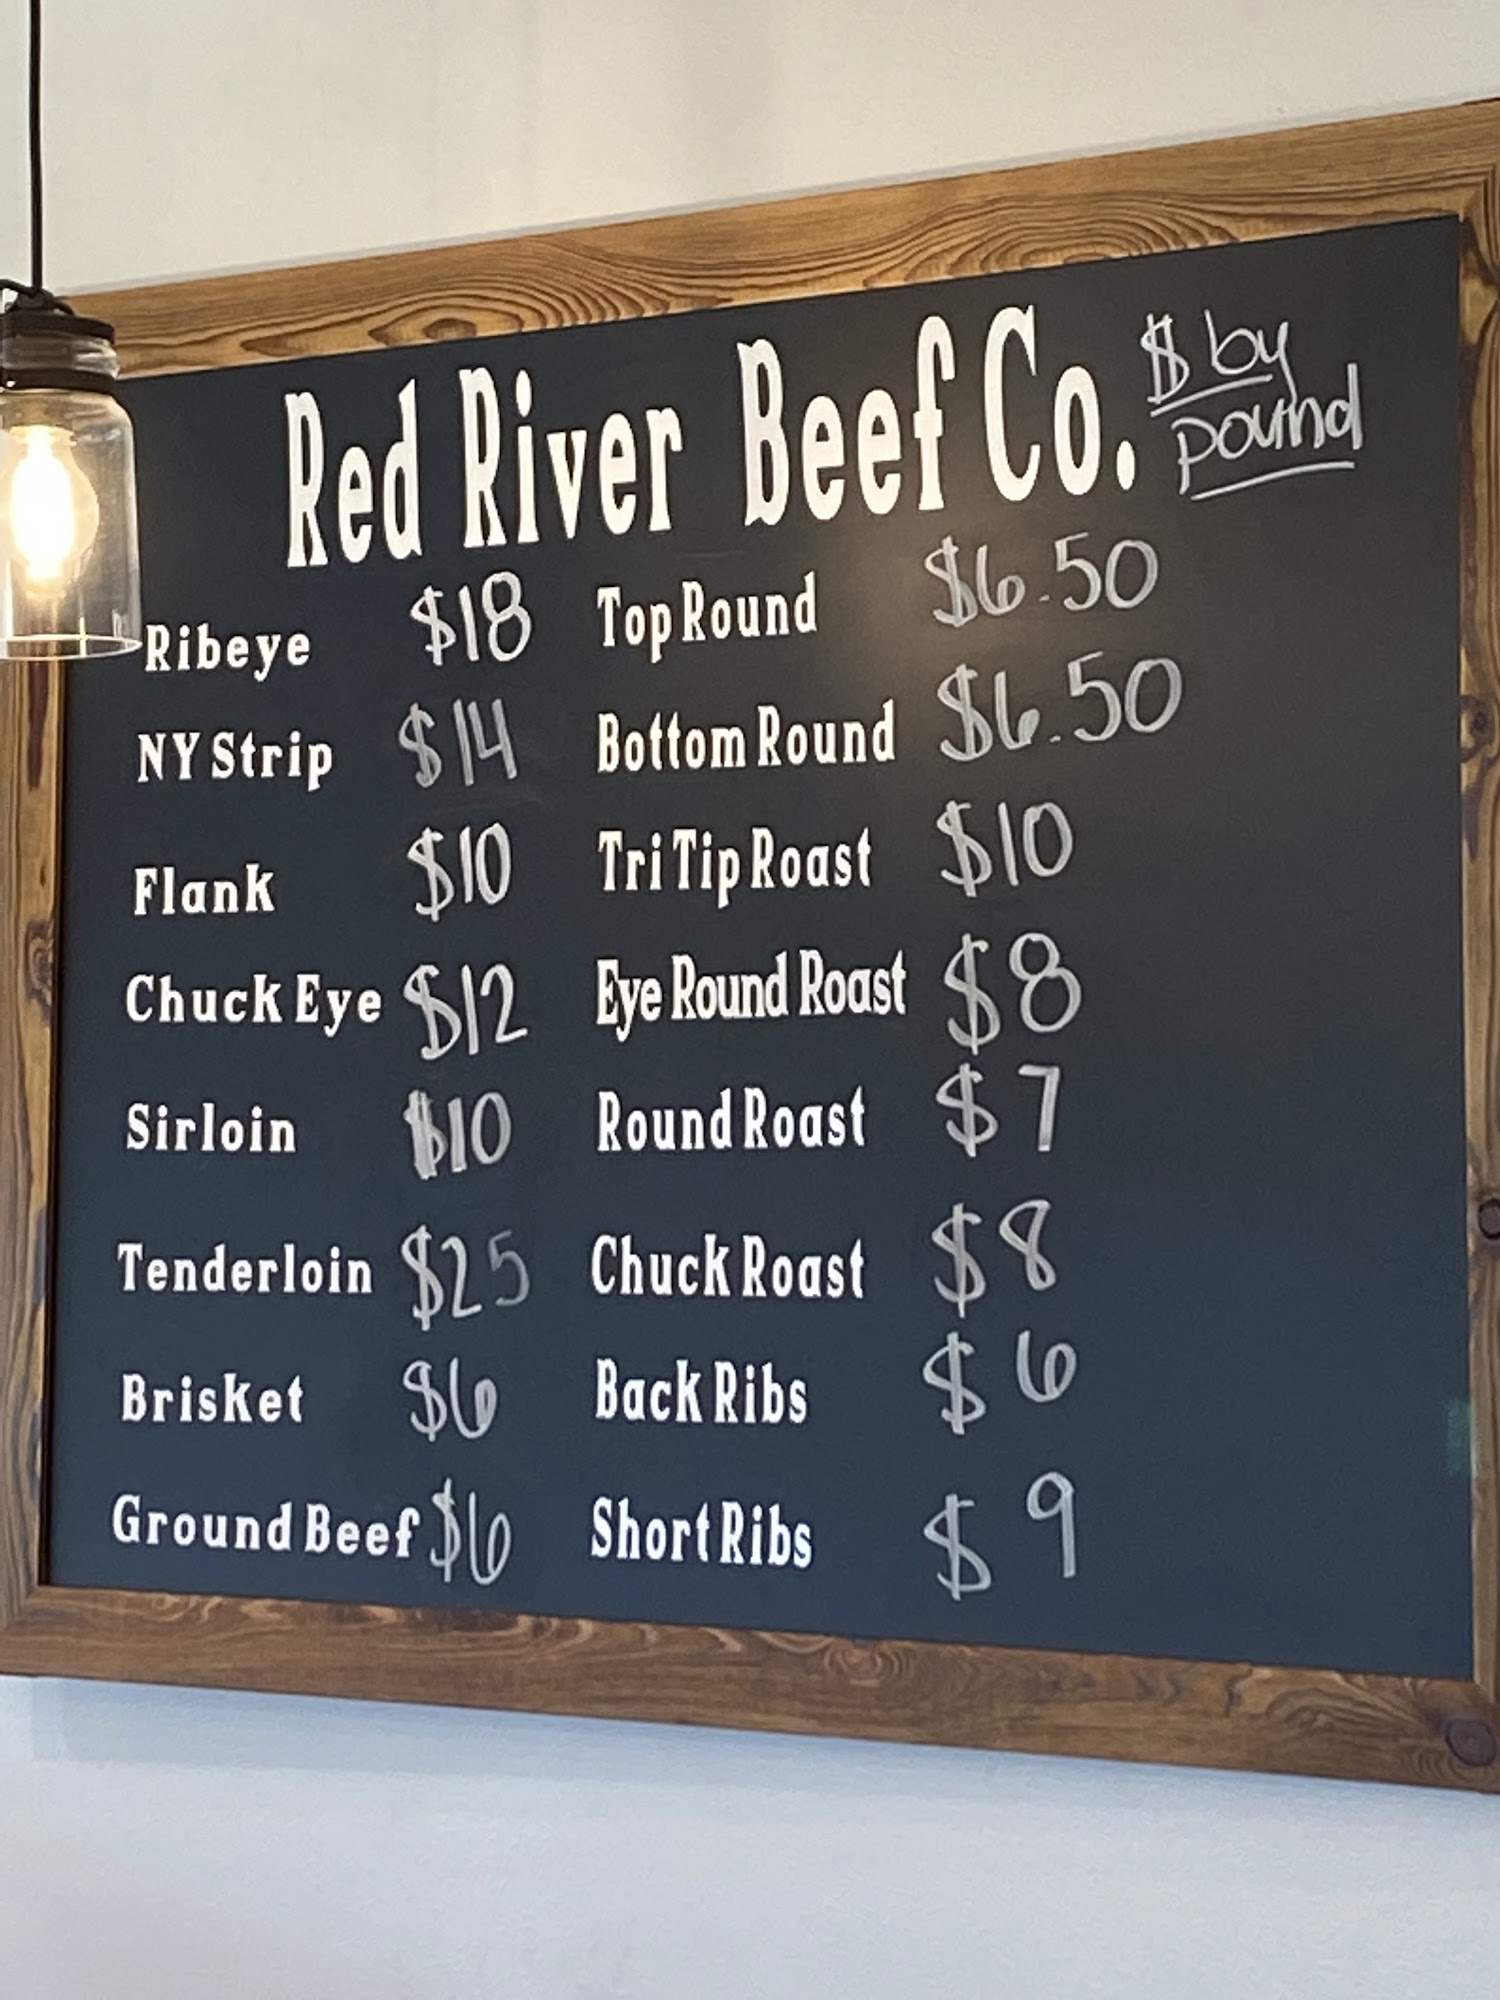 Red River Beef Co. $ by
pound
Ribeye $18 Top Round $6.50
NY Strip $14 Bottom Round $6.50
Flank $10 Tri Tip Roast $10
Chuck Eye $12 Eye Round Roast $8
Sirloin $10 Round Roast $7
Tenderloin $25 Chuck Roast $8
Brisket $6 Back Ribs $6
Ground Beef $6 Short Ribs $9